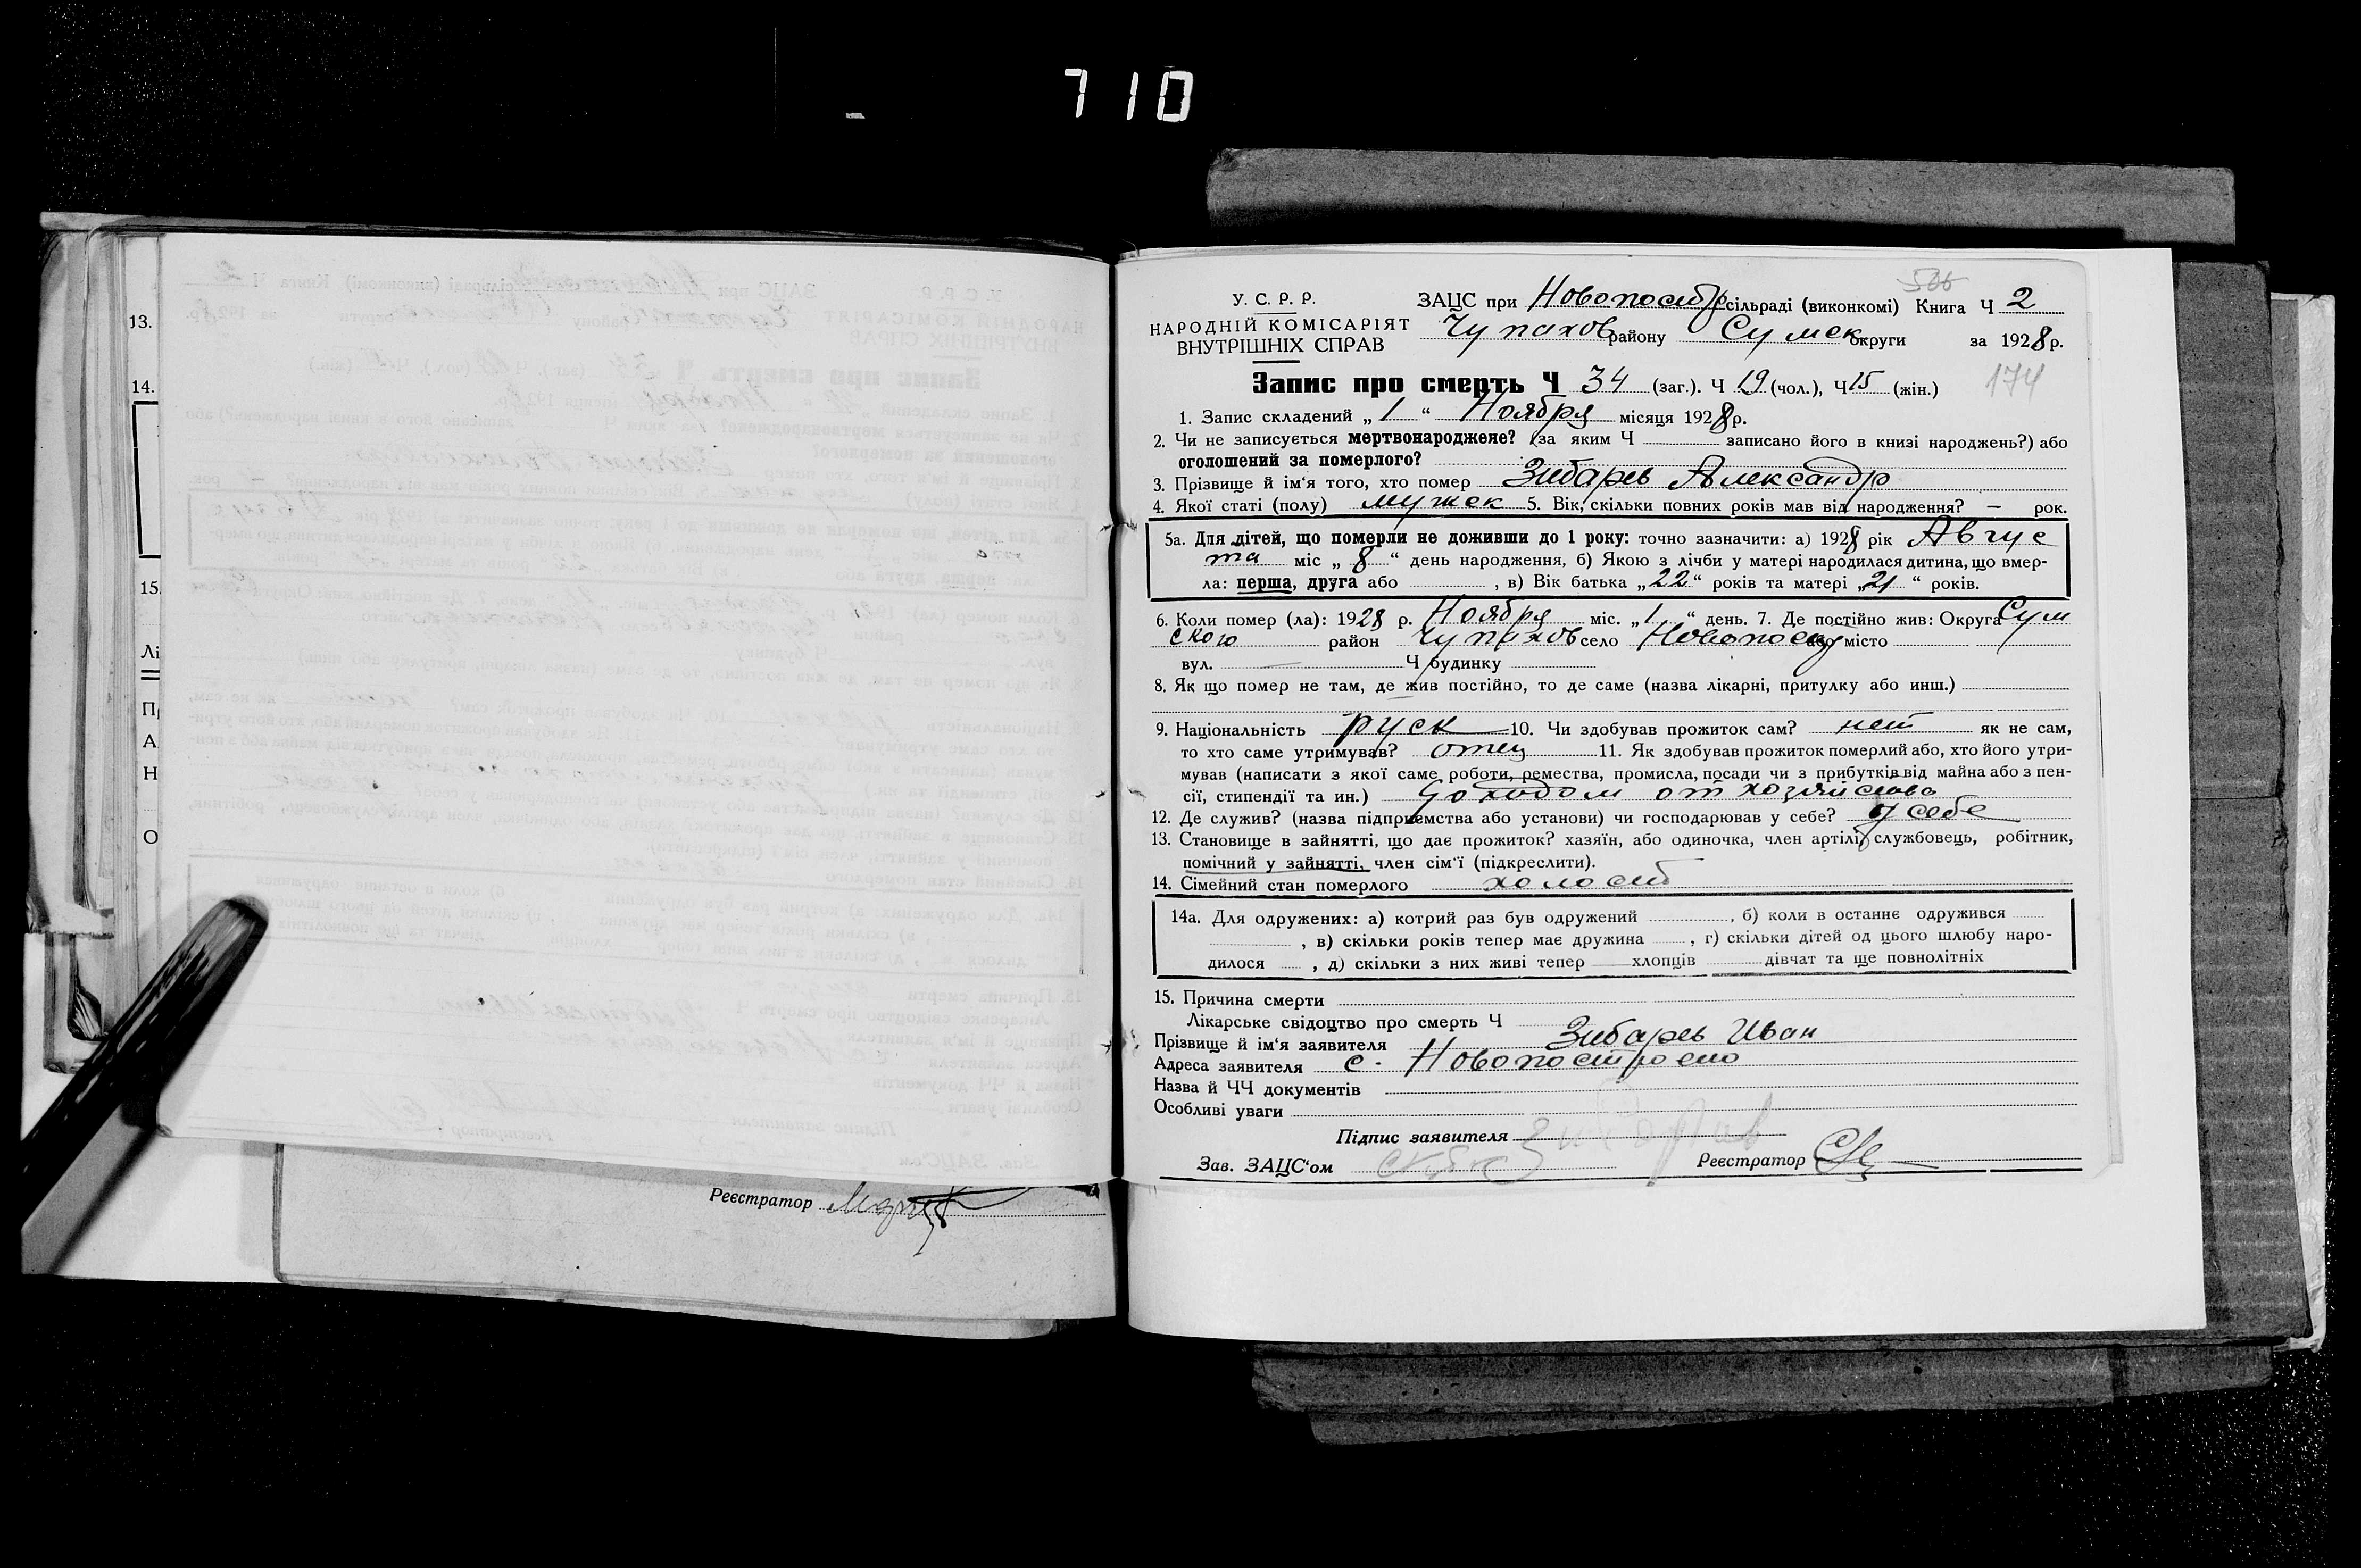 710
13.
14.
15.
Лі
П
А
Н
О
Реєстратор
506
У. С. Р. Р.
НАРОДНІЙ КОМІСАРІЯТ
ВНУТРІШНІХ СПРАВ
ЗАЦС при Новопостр сільраді (виконкомі) Книга Ч 2
Чупахов району Сумск округи за 1928 р.
174
Запис про смерть Ч 34 (заг.). Ч 19 (чол.), Ч 15 (жін.)
1. Запис складений „ 1 “ Ноября місяця 1928 р.
2. Чи не записується мертвонароджене? (за яким Ч записано його в книзі народжень?) або
оголошений за померлого?
3. Прізвище й ім'я того, хто помер Зибарев Александр
4. Якої статі (полу) мужск 5. Вік, скільки повних років мав від народження? — рок.
5а. Для дітей, що померли не доживши до 1 року: точно зазначити: а) 1928 рік Авгус
та міс „ 8 “ день народження, б) Якою з лічби у матері народилася дитина, що вмер-
ла: перша, друга або , в) Вік батька „ 22 “ років та матері „ 21 “ років.
6. Коли помер (ла): 1928 р. Ноября міс. „ 1 “ день. 7. Де постійно жив: Округа Сум
ского район Чупахов село Новопост або місто
вул. — Ч будинку
8. Як що помер не там, де жив постійно, то де саме (назва лікарні, притулку або инш.)
9. Національність руск 10. Чи здобував прожиток сам? нет як не сам,
то хто саме утримував? отец 11. Як здобував прожиток померлий або, хто його утри-
мував (написати з якої саме роботи, ремества, промисла, посади чи з прибутків від майна або з пен-
сії, стипендії та ин.) Доходом от хозяйства
12. Де служив? (назва підприємства або установи) чи господарював у себе? у себе
13. Становище в зайнятті, що дає прожиток? хазяїн, або одиночка, член артілі, службовець, робітник,
помічний у зайнятті, член сім'ї (підкреслити).
14. Сімейний стан померлого холост
14а. Для одружених: а) котрий раз був одружений , б) коли в останнє одружився
, в) скільки років тепер має дружина , г) скільки дітей од цього шлюбу наро-
дилося , д) скільки з них живі тепер хлопців дівчат та ще повнолітніх
15. Причина смерти
Лікарське свідоцтво про смерть Ч
Прізвище й ім'я заявителя Зибарев Иван
Адреса заявителя с. Новопостроено
Назва й ЧЧ документів
Особливі уваги
Підпис заявителя
Зав. ЗАЦС'ом
Реєстратор